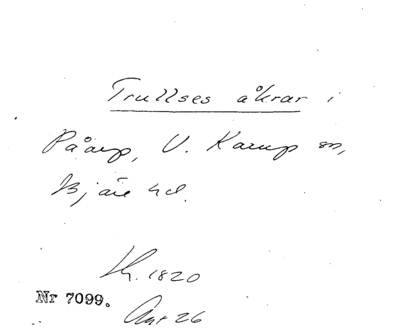 Trullses åkrar i
Påarp, V. Karup sn,
Bjäre hd.
Lh. 1820
Nr 7099.
Akt 26